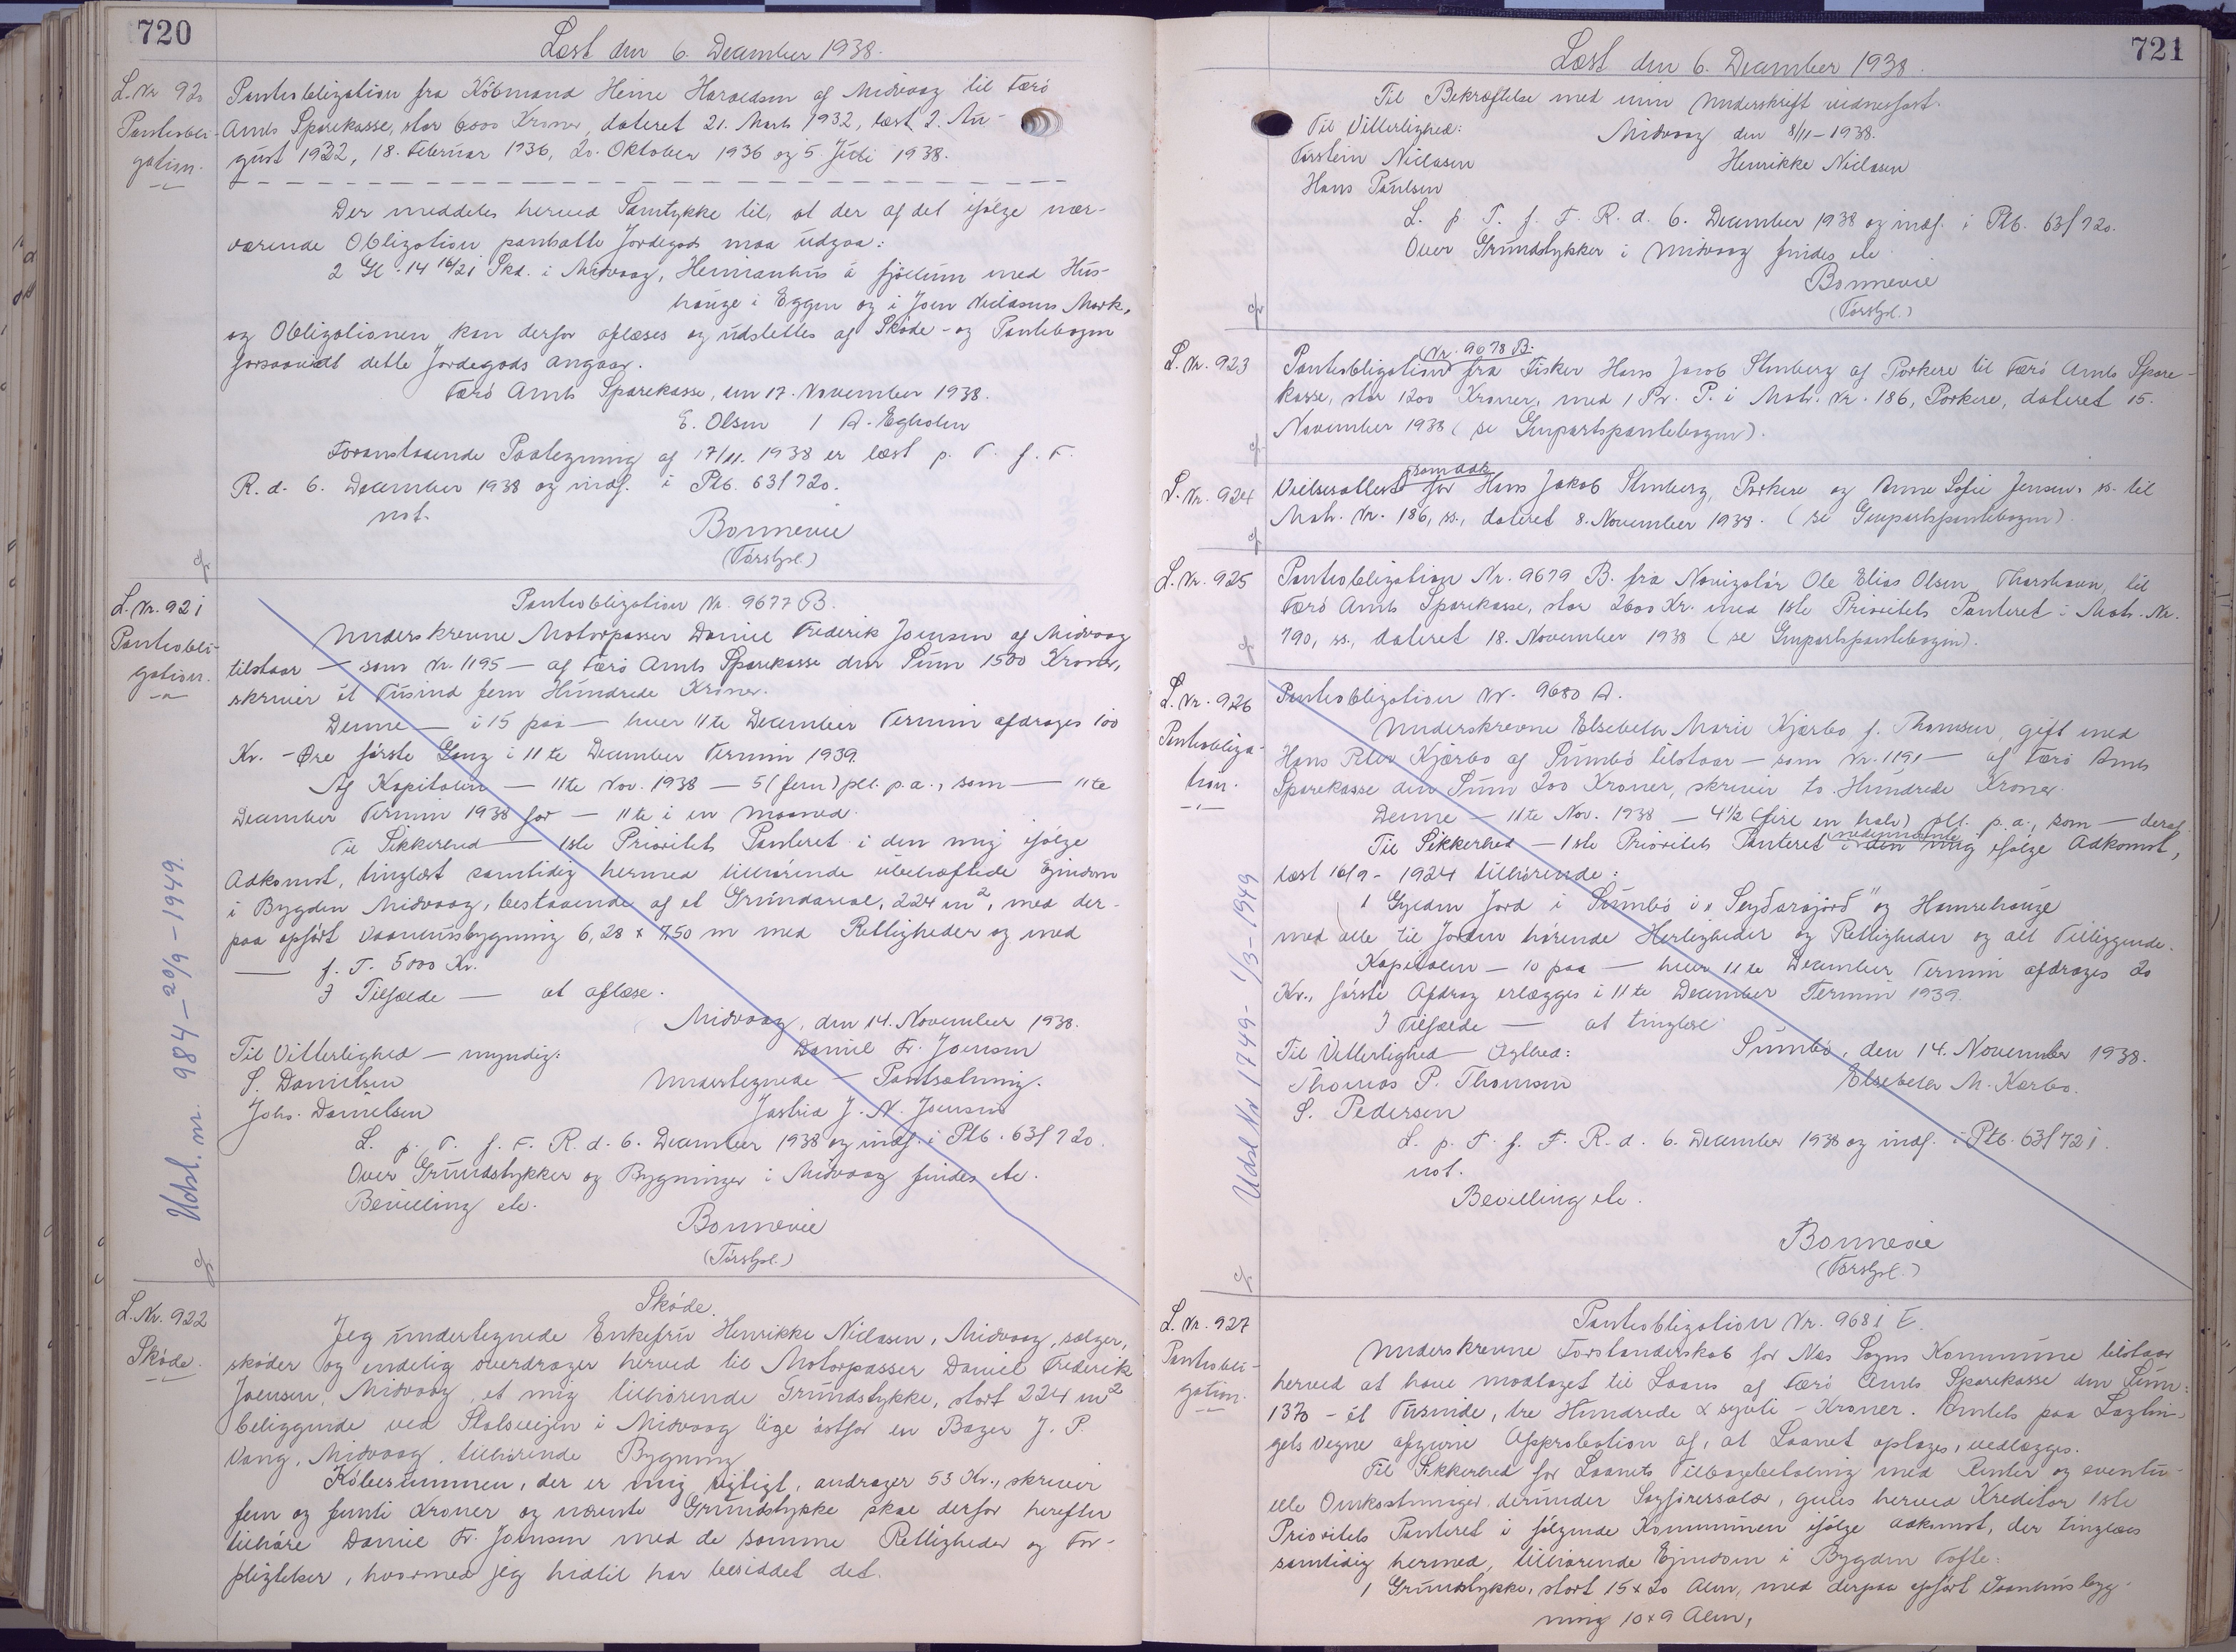 720
Læst den 6. December 1938.
L. Nr 920
Pantobli-
gation.
Pantobligation fra Købmand Heine Haraldsen af Midvaag til Færö
Amts Sparekasse, stor 6000 Kroner, dateret 21. Marts 1932, læst 2. Au-
gust 1932, 18. Februar 1936, 20. Oktober 1936 og 5 Juli 1938.
Der meddeles herved Samtykke til, at der af det ifølge nær-
værende Obligation pantsatte Jordegods maa udgaa:
2 Gl. 14 16/21 Skd. i Midvaag, Heimanhús á fjöllum med Hús-
hauge i Eggen og i Joen Niclasens Mark,
og Obligationen kan derfor aflæses og udslettes af Skøde- og Pantebogen
forsaavidt dette Jordegods angaar.
Færö Amts Sparekasse, den 17. November 1938.
E. Olsen / A. Egholm
Foranstaaende Paategning af 17/11. 1938 er læst p. T. f. F.
R. d. 6. December 1938 og indf. i Ptb. 63/720.
not.
Bonnevie
(Förstgl.)
L. Nr. 921
Pantobli-
gation.
Udsl. nr. 984 - 20/9 - 1949.
Pantobligation Nr. 9677 B.
Underskrevne Motorpasser Daniel Frederik Joensen af Midvaag
tilstaar — som Nr. 1195 — af Færö Amts Sparekasse den Sum 1500 Kroner,
skriver ét Tusind fem Hundrede Kroner.
Denne — i 15 paa — hver 11te December Termin afdrages 100
Kr. - Øre første Gang i 11te December Termin 1939.
Af Kapitalen — 11te Nov. 1938 — 5 (fem) pCt. p.a., som — 11te
December Termin 1938 for — 11te i en Maaned.
Til Sikkerhed — 1ste Prioritets Panteret i den mig ifølge
Adkomst, tinglæst samtidig hermed tilhørende ubehæftede Ejendom
i Bygden Midvaag, bestaaende af et Grundareal, 224 m², med der-
paa opført Vaaningshusbygning 6,28 x 7,50 m med Rettigheder og med
— f. T. 5000 Kr.
I Tilfælde — at aflæse.
Midvaag, den 14. November 1938.
Til Vitterlighed — myndig:
Daniel Fr. Joensen
S. Danielsen
Undertegnede — Pantsætning.
Johs. Danielsen
Jastrid J. N. Joensen
L. p. T. f. F. R. d. 6. December 1938 og indf. i Ptb. 63/720.
Over Grundstykker og Bygninger i Midvaag findes etc.
Bevilling etc.
Bonnevie
(Förstgl.)
L. Nr. 922
Skøde.
Skøde.
Jeg undertegnede Enkefru Henrikke Niclasen, Midvaag, sælger,
skøder og endelig overdrager herved til Motorpasser Daniel Frederik
Joensen, Midvaag, et mig tilhørende Grundstykke, stort 224 m²
beliggende ved Stalsveijen i Midvaag lige østfor en Bager J. P.
Vang, Midvaag, tilhørende Bygning.
Købesummen, der er mig rigtigt, andrager 53 Kr., skriver
fem og femti Kroner og nævnte Grundstykke skal derfor herefter
tilhøre Daniel Fr. Joensen med de samme Rettigheder og For-
pligtelser, hvormed jeg hidtil har besiddet det.
721
Læst den 6. December 1938.
Til Bekræftelse med min Underskrift vidnesfast.
Til Vitterlighed:
Midvaag den 8/11 - 1938.
Torstein Niclasen
Henrikke Niclasen
Hans Paulsen
L. p T. f. F. R. d. 6. December 1938 og indf. i Ptb. 63/720.
Over Grundstykker i Midvaag findes etc.
Bonnevie
(Förstgl.)
L. Nr. 923
Pantobligation (Nr. 9678 B.) fra Fisker Hans Jacob Stenberg af Porkere til Færö Amts Spare-
kasse, stor 1200 Kroner, med 1 Pr. P. i Matr. Nr. 186, Porkere, dateret 15.
November 1938 (se Genpartspantebogen).
L. Nr. 924
Vielsesattest for Hans Jakob Stenberg, Porkere og Anne Sofie Jensen, ss. til
Matr. Nr. 186, ss., dateret 8. November 1938. (se Genpartspantebogen).
L. Nr. 925
Pantobligation Nr. 9679 B. fra Navigatør Ole Elias Olsen, Thorshavn, til
Færö Amts Sparekasse, stor 2600 Kr. med 1ste Prioritets Panteret i Matr. Nr.
790, ss., dateret 18. November 1938 (se Genpartspantebogen).
L. Nr. 926
Pantobliga-
tion.
Udsl Nr 1749 - 1/3 - 1949
Pantobligation Nr. 9680 A.
Underskrevne Elsebeth Marie Kjærbo f. Thomsen, gift med
Hans Peter Kjærbo af Sumbö tilstaar — som Nr. 1191 — af Færö Amts
Sparekasse den Sum 200 Kroner, skriver to Hundrede Kroner.
Denne — 11te Nov. 1938 — 4½ (fire en halv) pCt. p.a., som — deraf.
Til Sikkerhed — 1ste Prioritets Panteret i den mig ifølge Adkomst,
læst 16/9 - 1924 tilhørende:
1 Gylden Jord i Sumbö i „Seyðarajørð" og Hamrehauge
med alle til Jorden hørende Herligheder og Rettigheder og alt Tilliggende.
Kapitalen — 10 paa — hver 11te December Termin afdrages 20
Kr., første Afdrag erlægges i 11te December Termin 1939.
I Tilfælde — at tinglæse.
Til Vitterlighed — Ægthed:
Sumbö, den 14. November 1938.
Thomas P. Thomsen
Elsebeth M. Kærbo.
S. Pedersen
L. p. T. f. F. R. d. 6. December 1938 og indf. i Ptb. 63/721.
not.
Bevilling etc.
Bonnevie
(Førstgl.)
L. Nr. 927
Pantobli-
gation.
Pantobligation Nr. 9681 E.
Underskrevne Forstanderskab for Næs Sogns Kommune tilstaar
herved at have modtaget til Laans af Færö Amts Sparekasse den Sum:
1370 - ét Tusinde, tre Hundrede & syvti - Kroner. Amtets paa Lagtin-
gets Vegne afgivne Approbation af, at Laanet optages, vedlægges.
Til Sikkerhed for Laanets Tilbagebetaling med Renter og eventu-
elle Omkostninger derunder Sagførersalær, gives herved Kreditor 1ste
Prioritets Panteret i følgende Kommunen ifølge Adkomst, der tinglæses
samtidig hermed, tilhørende Ejendom i Bygden Tofte:
1 Grundstykke, stort 15 x 20 Alen, med derpaa opført Vaanhusbyg-
ning 10 x 9 Alen,